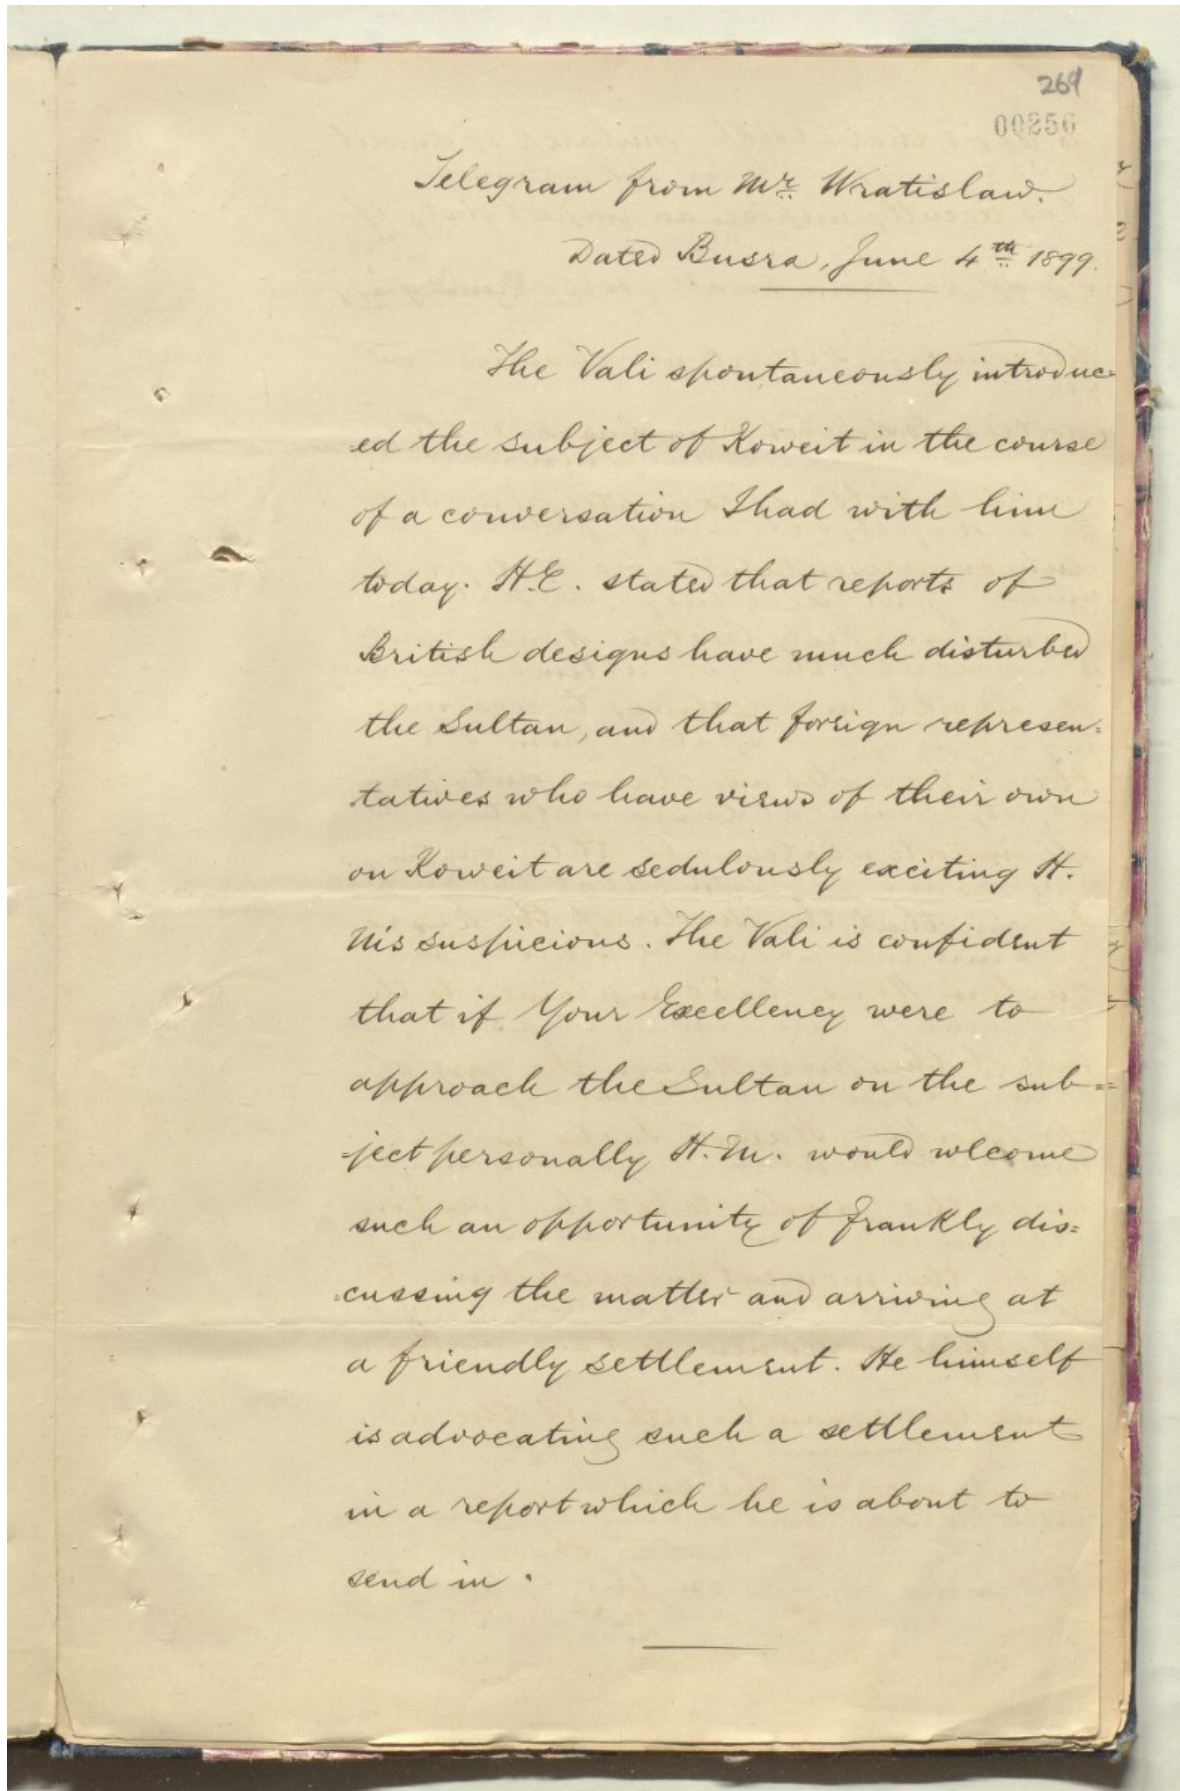 269
00256
Telegram from Mr. Wratislaw.
Dated Busra, June 4th 1899.
The Vali spontaneously introduc=
ed the subject of Koweit in the course
of a conversation I had with him
today. H.E. stated that reports of
British designs have much disturbed
the Sultan, and that foreign represen=
tatives who have views of their own
on Koweit are sedulously exciting H.
M's suspicions. The Vali is confident
that if Your Excellency were to
approach the Sultan on the sub=
=ject personally H.M. would wlcome
such an opportunity of frankly dis=
=cussing the matter and arriving at
a friendly settlement. He himself
is advocating such a settlement
in a report which he is about to
send in.